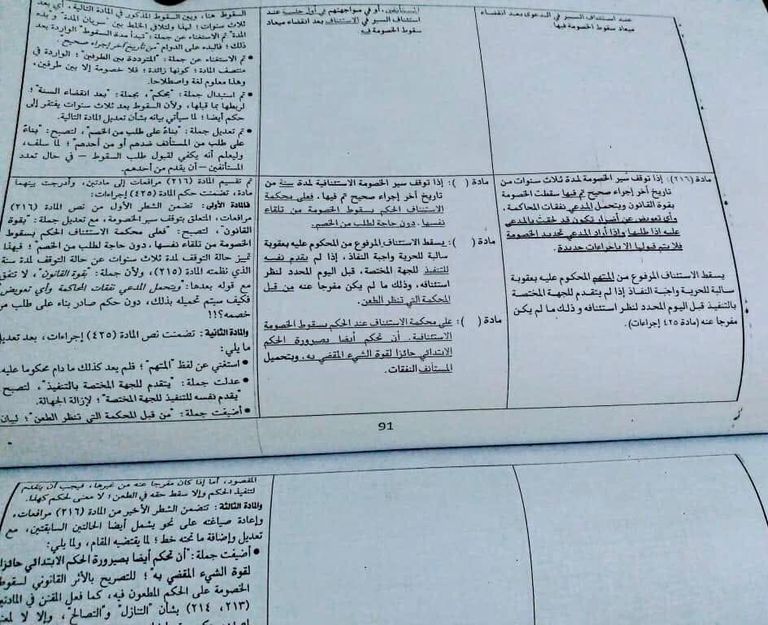 عند استئناف السير في الدعوى بعد انقضاء
ميعاد سقوط الخصومة فيها
مادة (٢١٦): إذا توقف سير الخصومة لمدة ثلاث سنوات من
تاريخ آخر إجراء صحيح تم فيها سقطت الخصومة
بقوة القانون ويتحمل المدعي نفقات المحاكمة،
وأي تعويض عن أضرار تكون قد لحقت بالمدعى
عليه إذا طلبها وإذا أراد المدعي تجديد الخصومة
فلا يتم قبولها إلا بإجراءات جديدة.
يسقط الاستئناف المرفوع من المتهم المحكوم عليه بعقوبة
سالبة للحرية واجبة النفاذ إذا لم يتقدم للجهة المختصة
بالتنفيذ قبل اليوم المحدد لنظر استئنافه وذلك ما لم يكن
مفرجا عنه (مادة ٤٢٥ إجراءات).
المستأنفين، أو في مواجهتهم في أول جلسة عند
استئناف السير في الاستئناف بعد انقضاء ميعاد
سقوط الخصومة فيه
مادة ( ): إذا توقف سير الخصومة الاستئنافية لمدة سنة من
تاريخ آخر إجراء صحيح تم فيها، فعلى محكمة
الاستئناف الحكم بسقوط الخصومة من تلقاء
نفسها، دون حاجة لطلب من الخصم.
مادة ( ): يسقط الاستئناف المرفوع من المحكوم عليه بعقوبة
سالبة للحرية واجبة النفاذ، إذا لم يقدم نفسه
للتنفيذ للجهة المختصة، قبل اليوم المحدد لنظر
استئنافه، وذلك ما لم يكن مفرجا عنه من قبل
المحكمة التي تنظر الطعن.
مادة ( ): على محكمة الاستئناف عند الحكم بسقوط الخصومة
الاستئنافية، أن تحكم أيضا بصيرورة الحكم
الابتدائي حائزا لقوة الشيء المقضي به، ويتحمل
المستأنف النفقات.
السقوط هنا، وبين السقوط المذكور في المادة التالية، أي بعد
ثلاث سنوات؛ لهذا ولتلافي الخلط بين "سريان المدة" و"بدء
المدة" تم الاستغناء عن جملة: "تبدأ مدة السقوط" الواردة بعد
ذلك؛ فالبدء على الدوام "من تاريخ آخر إجراء صحيح"
• تم الاستغناء عن جملة: "المترددة بين الطرفين"؛ الواردة في
منتصف المادة؛ كونها زائدة؛ فلا خصومة إلا بين طرفين،
وهذا معلوم لغة واصطلاحا.
• تم استبدال جملة: "يحكم"، بجملة: "بعد انقضاء السنة"؛
لربطها بما قبلها، ولأن السقوط بعد ثلاث سنوات يفتقر إلى
حكم أيضا؛ لما سيأتي بيانه بشأن تعديل المادة التالية.
• تم تعديل جملة: "بناءً على طلب من الخصم"، لتصبح: "بناءً
على طلب من المستأنف ضدهم أو من أحدهم"؛ لما سلف،
وليعلم أنه يكفي لقبول طلب السقوط – في حال تعدد
المستأنفين – أن يقدم من أحدهم.
تم تقسيم المادة (٢١٦) مرافعات إلى مادتين، وأدرجت بينهما
مادة، تضمنت حكم المادة (٤٢٥) إجراءات:
فالمادة الأولى: تضمنت الشطر الأول من نص المادة (٢١٦)
مرافعات، المتعلق بتوقف سير الخصومة، مع تعديل جملة: "بقوة
القانون"، لتصبح: "فعلى محكمة الاستئناف الحكم بسقوط
الخصومة من تلقاء نفسها، دون حاجة لطلب من الخصم"؛ فبهذا
تميز حالة التوقف لمدة ثلاث سنوات عن حالة التوقف لمدة سنة
الذي نظمته المادة (٢١٥)، ولأن جملة: "بقوة القانون"، لا تتفق
مع قوله بعدها: "ويتحمل المدعي نفقات المحاكمة وأي تعويض"
فكيف سيتم تحميله بذلك، دون حكم صادر بناء على طلب من
خصمه؟!!!
والمادة الثانية: تضمنت نص المادة (٤٢٥) إجراءات، بعد تعديل
ما يلي:
• استغني عن لفظ "المتهم"؛ فلم يعد كذلك ما دام محكوما عليه.
• عدلت جملة: "يتقدم للجهة المختصة بالتنفيذ"، لتصبح
"يقدم نفسه للتنفيذ للجهة المختصة"؛ لإزالة الجهالة.
• أضيفت جملة: "من قبل المحكمة التي تنظر الطعن"؛ لبيان
91
المقصود، أما إذا كان مفرجا عنه من غيرها، فيجب أن يتقدم
لتنفيذ الحكم وإلا سقط حقه في الطعن؛ لا معنى لحكم كهذا.
والمادة الثالثة: تتضمن الشطر الأخير من المادة (٢١٦) مرافعات،
وإعادة صياغته على نحو يشمل أيضا الحالتين السابقتين، مع
تعديل وإضافة ما تحته خط؛ لما يقتضيه المقام، ولما يلي:
• أضيفت جملة: "أن تحكم أيضا بصيرورة الحكم الابتدائي حائزا
لقوة الشيء المقضي به"؛ للتصريح بالأثر القانوني لسقوط
الخصومة على الحكم المطعون فيه، كما فعل المقنن في المادتين
(٢١٣، ٢١٤) بشأن "التنازل" و"التصالح"، وإلا لا لمعنى